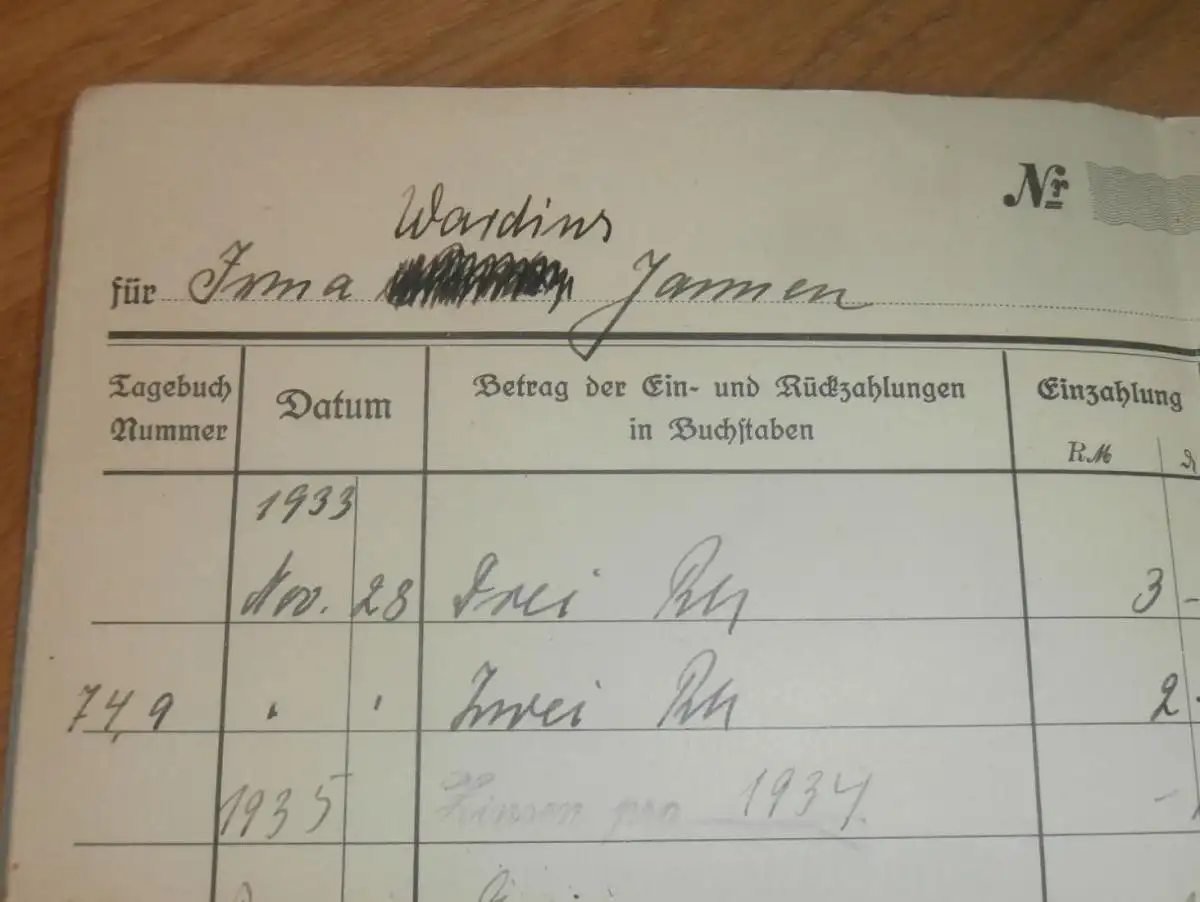 Nr
Wardins
für Irma Jannen
Tagebuch Nummer Datum Betrag der Ein- und Rückzahlungen in Buchstaben Einzahlung
RM
1933
Nov. 28 Drei RM 3 -
74,9 " " Zwei RM 2 -
1935 Zinsen pro 1934. -